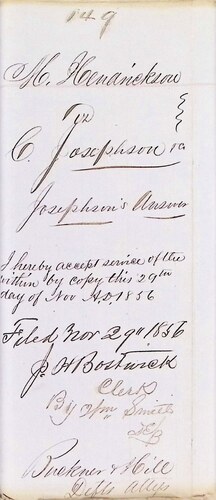 149
M. Henarickson
vs
C. Josephson
Josephson's Answer
I hereby accept service of the
within by copy this 29th
day of Nov A.D 1856
Filed Nov 29th 1856
J. H Bostwick
Clerk
By Wm Smith
Buckner & Hill
Defts Attys